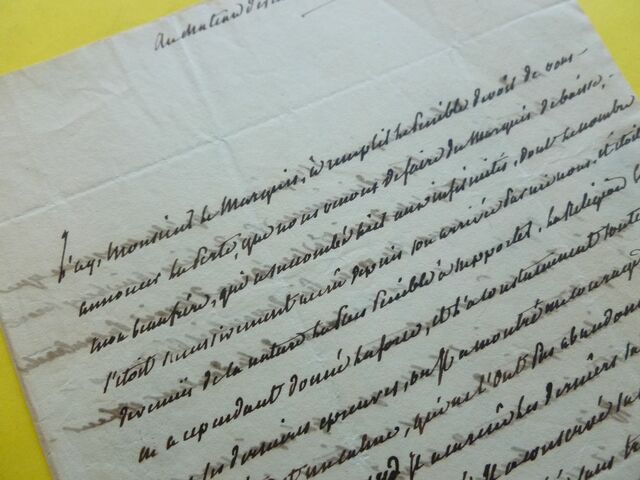 Au chateau de
J'ay, Monsieur le Marquis, à remplir le penible devoir de vous
annoncer la perte, que nous venons de faire du Marquis de
mon beaufrère, qui a succombé hier aux infirmités, dont le nombre
s'étoit successivement accrû depuis son arrivée parmi nous, et étoit
devenües de la nature la plus penible à supporter, la Religion
en a cependant donné la force, et il a constamment
les dernieres epreuves, où il a montré un courage
et un calme, qui ne l'ont pas abandonné
il a les derniers
il a conservé